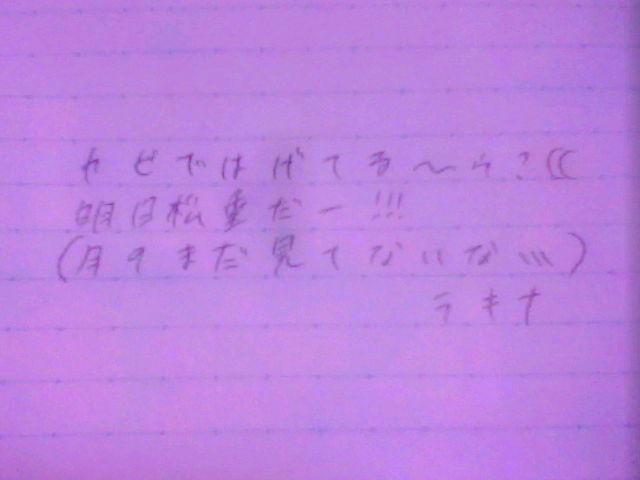 やどではげてる〜ら?((
明日松重だー!!!
(月9まだ見てないな...)
ラキナ